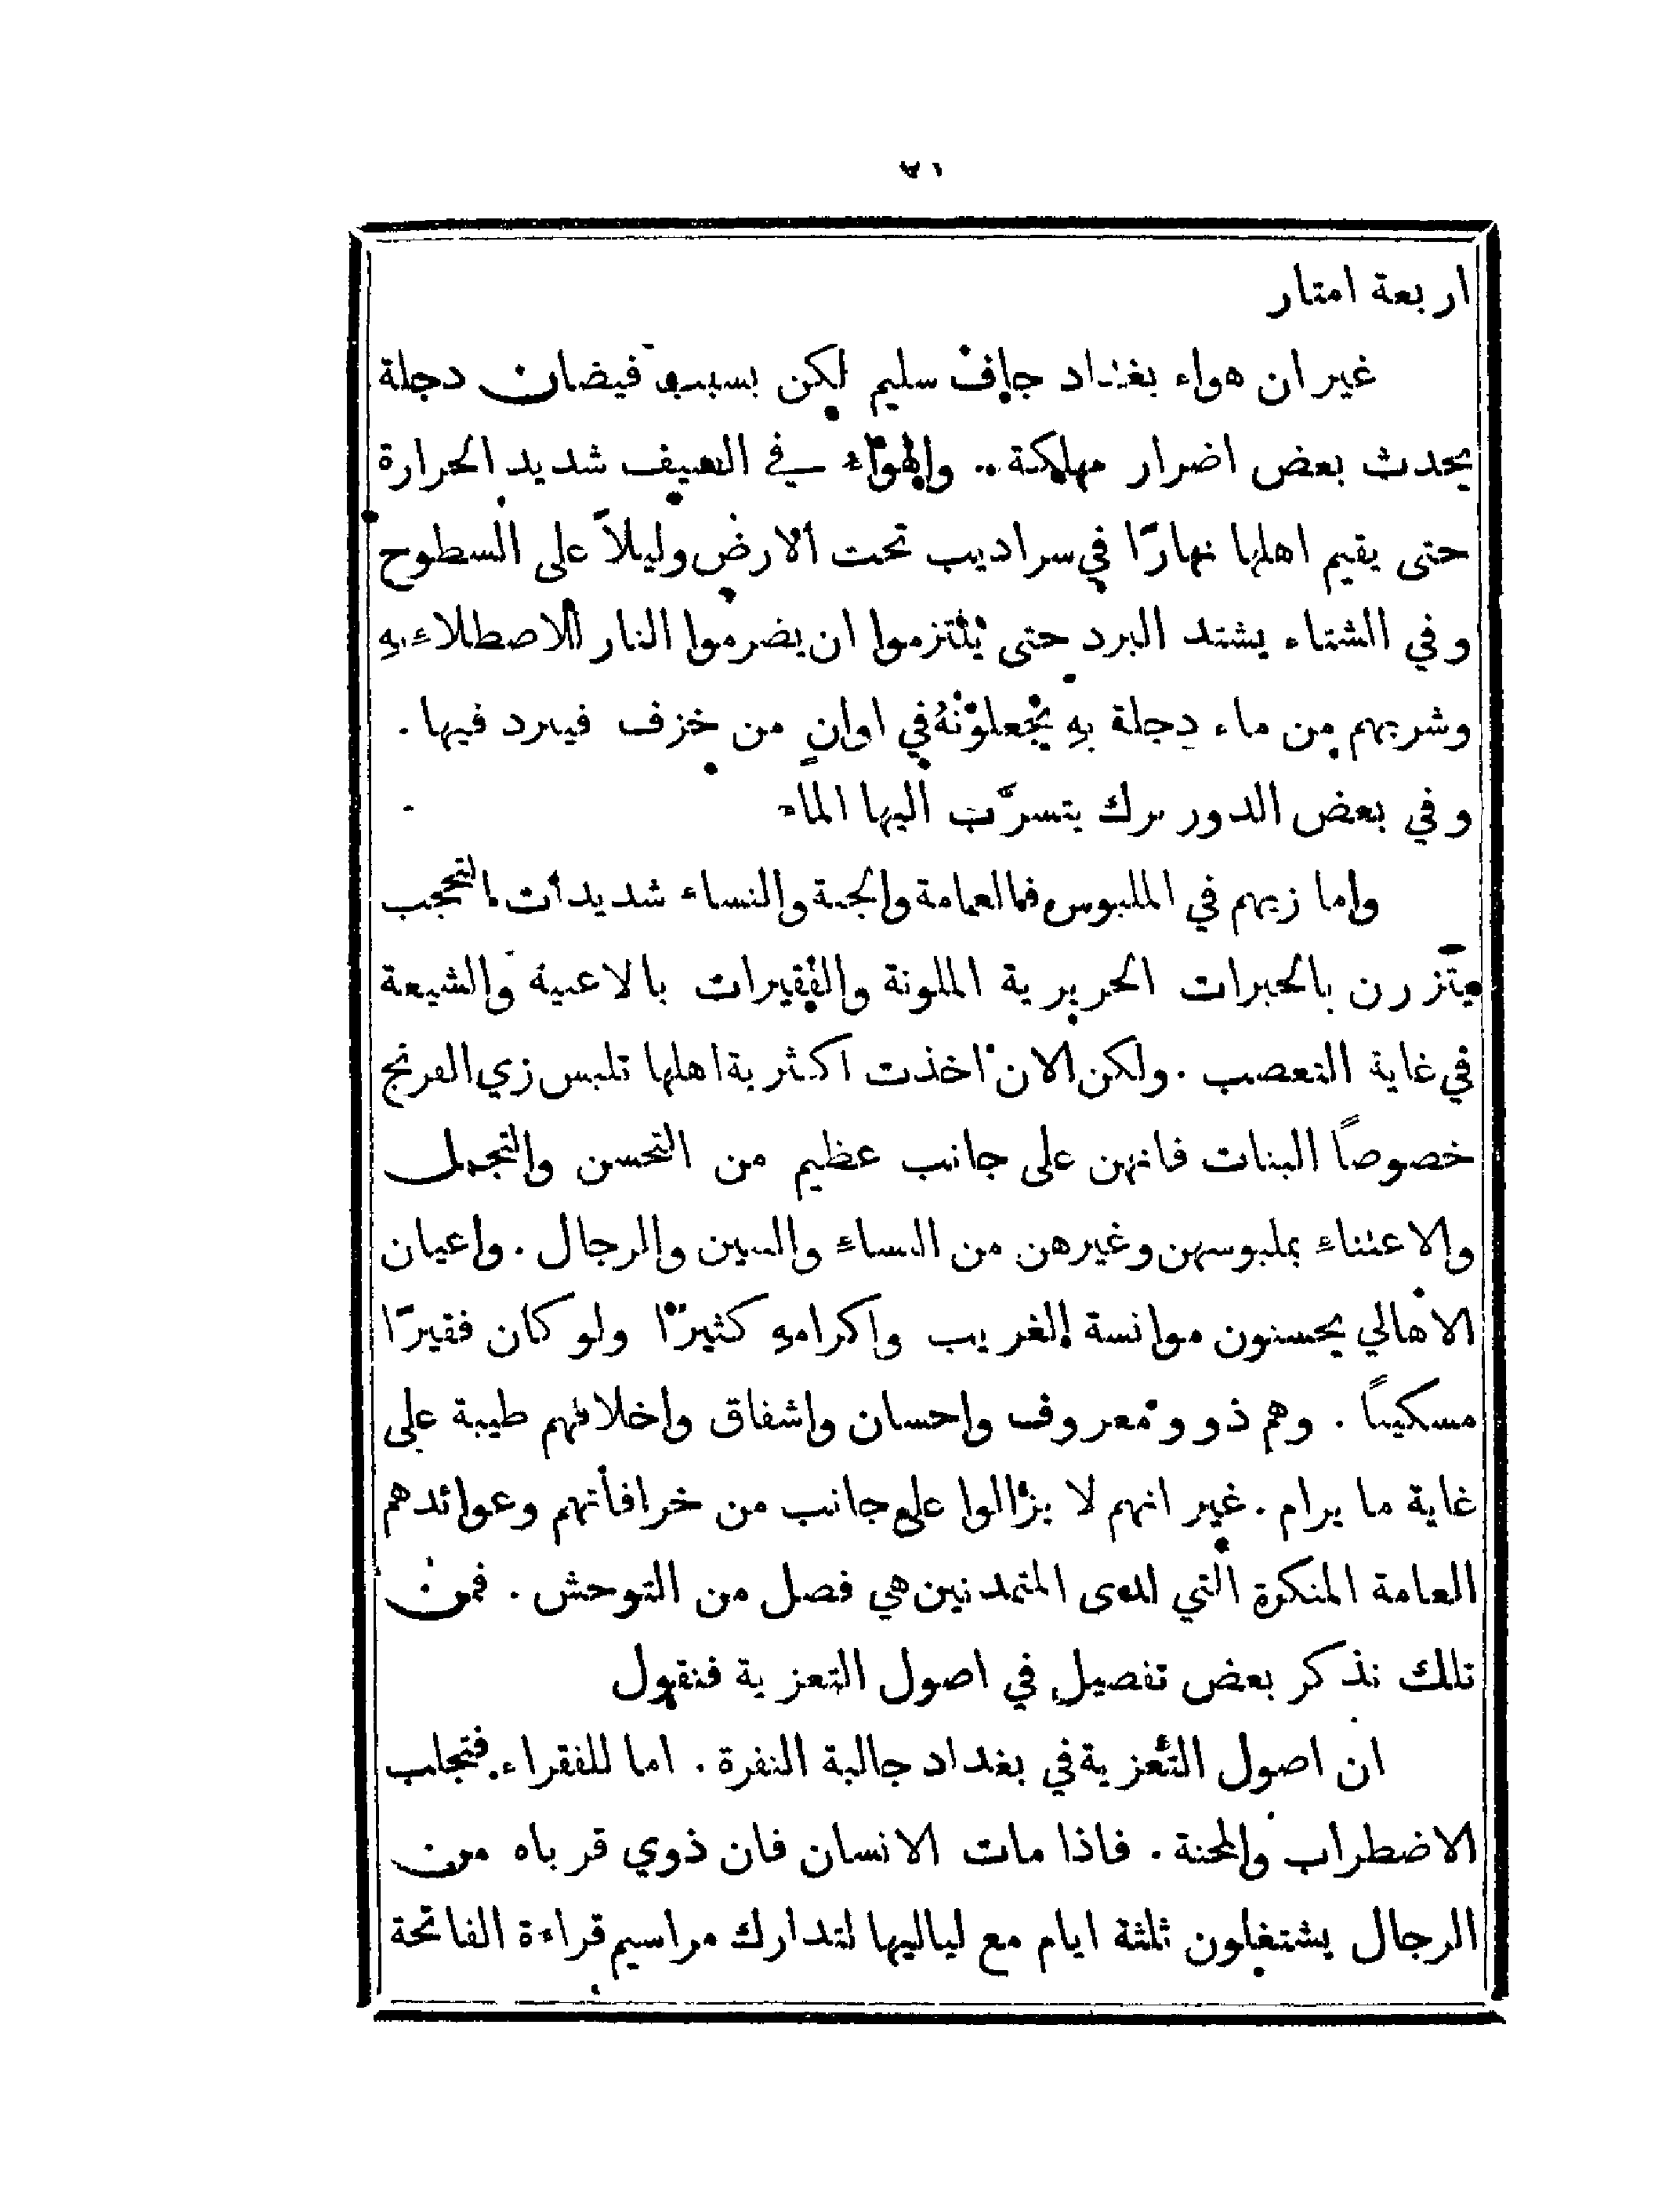 اربعة امتار
غير ان هواء بغداد جاف سليم لكن بسبب فيضان دجلة
يحدث بعض اضرار مهلكة .. والهواء في الصيف شديد الحرارة
حتى يقيم اهلها نهارًا في سراديب تحت الارض وليلاً على السطوح
وفي الشتاء يشتد البرد حتى يلتزموا ان يضرموا النار للاصطلاء بهِ
وشربهم من ماء دجلة بهِ يجعلونهُ في اوانٍ من خزف فيبرد فيها .
وفي بعض الدور برك يتسرَّب اليها الماء
واما زيهم في الملبوس فالعمامة والجبة والنساء شديدات التحجب
يتَّزرن بالحبرات الحريرية الملونة والفقيرات بالاعبية والشيعة
في غاية التعصب . ولكن الان اخذت اكثرية اهلها تلبس زي الفرنج
خصوصاً البنات فانهن على جانب عظيم من التحسن والتجمل
والاعتناء بملبوسهن وغيرهن من النساء والبنين والرجال . واعيان
الاهالي يحسنون موانسة الغريب واكرامهِ كثيرًا ولو كان فقيرًا
مسكيناً . وهم ذوو معروف واحسان واشفاق واخلاقهم طيبة على
غاية ما يرام . غير انهم لا يزالوا على جانب من خرافاتهم وعوائدهم
العامة المنكرة التي لدى المتمدنين هي فصل من التوحش . فمن
تلك نذكر بعض تفصيل في اصول التعزية فنقول
ان اصول التعزية في بغداد جالبة النفرة . اما للفقراء فتجلب
الاضطراب والمحنة . فاذا مات الانسان فان ذوي قرباه من
الرجال يشتغلون ثلثة ايام مع لياليها لتدارك مراسيم قراءة الفاتحة